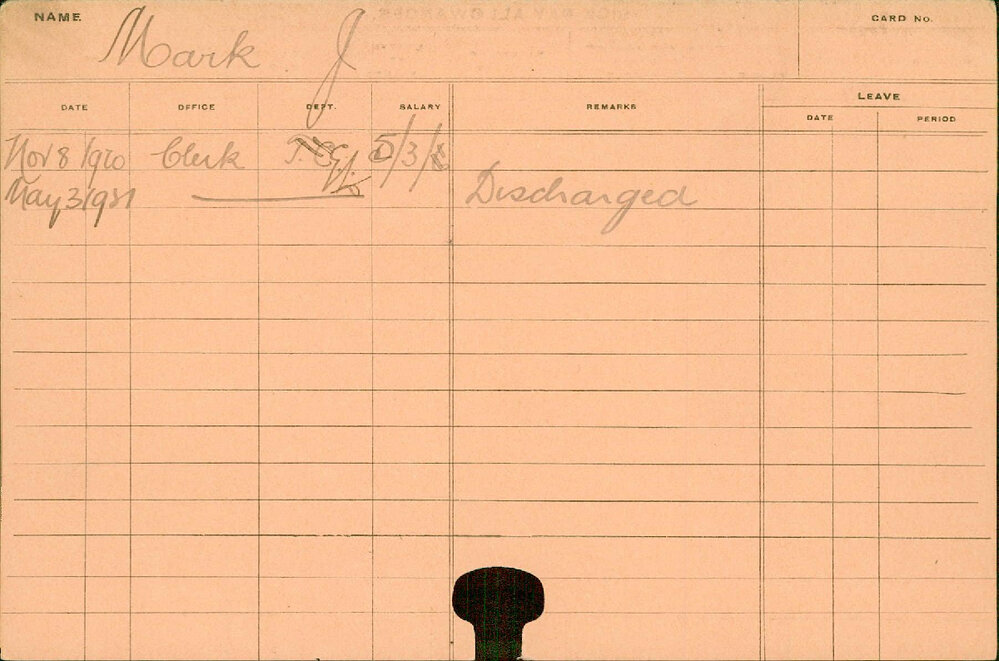 NAME
CARD No.
Mark J
DATE OFFICE DEPT. SALARY REMARKS LEAVE
DATE PERIOD
Nov 8 1920 Clerk
May 31921 Discharged